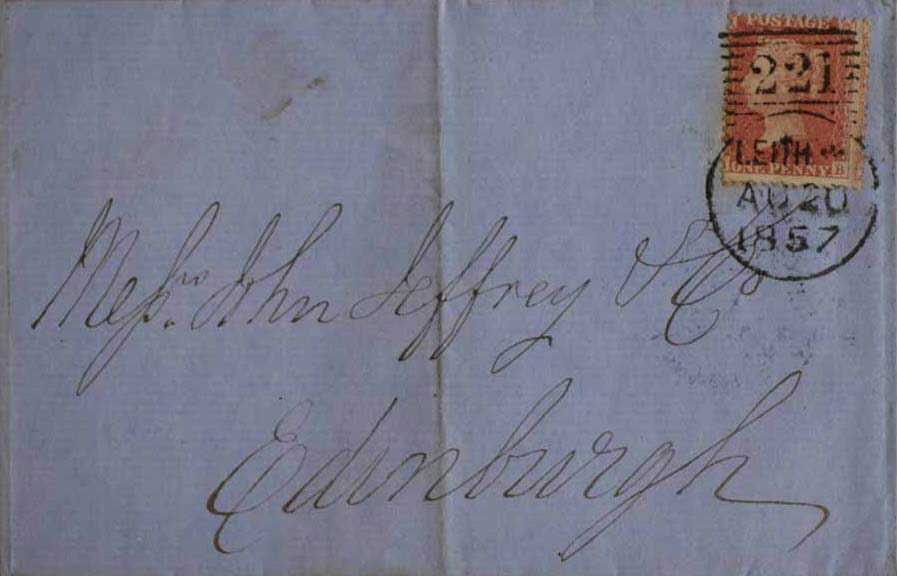 POSTAGE
221
ONE PENNY. B
LEITH
AU 20
1857
Messrs. John Jeffrey & Co
Edinburgh